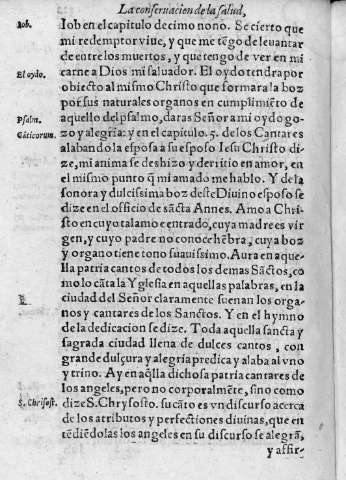 La conseruacion de la salud,
Iob.
Iob en el capitulo decimo nono. Se cierto que
mi redemptor viue, y que me tẽgo de leuantar
de entre los muertos, y que tengo de ver en mi
El oydo.
carne a Dios mi saluador. El oydo tendra por
obiecto al mismo Christo que formara la boz
por sus naturales organos en cumplimiẽto de
Psalm.
aquello del psalmo, daras Señor a mi oydo go-
Cãticorum.
zo y alegria: y en el capitulo. 5. de los Cantares
alabando la esposa a su esposo Iesu Christo di-
ze, mi anima se deshizo y derritio en amor, en
el mismo punto q̃ mi amado me hablo. Y de la
sonora y dulcissima boz deste Diuino esposo se
dize en el officio de sãcta Annes. Amo a Chri-
sto en cuyo talamo e entrado, cuya madre es vir
gen, y cuyo padre no conoce hẽbra, cuya boz
y organo tiene tono suauissimo. Aura en aque-
lla patria cantos de todos los demas Sãctos, co-
mo lo cãta la Yglesia en aquellas palabras, en la
ciudad del Señor claramente suenan los orga-
nos y cantares de los Sanctos. Y en el hymno
de la dedicacion se dize. Toda aquella sancta y
sagrada ciudad llena de dulces cantos, con
grande dulçura y alegria predica y alaba al vno
y trino. Ay en aq̃lla dichosa patria cantares de
los angeles, pero no corporalmẽte, sino como
S. Chrisost.
dize S. Chrysosto. su cãto es vn discurso acerca
de los atributos y perfectiones diuinas, que en
tẽdiẽdolas los angeles en su discurso se alegrã,
y affir-